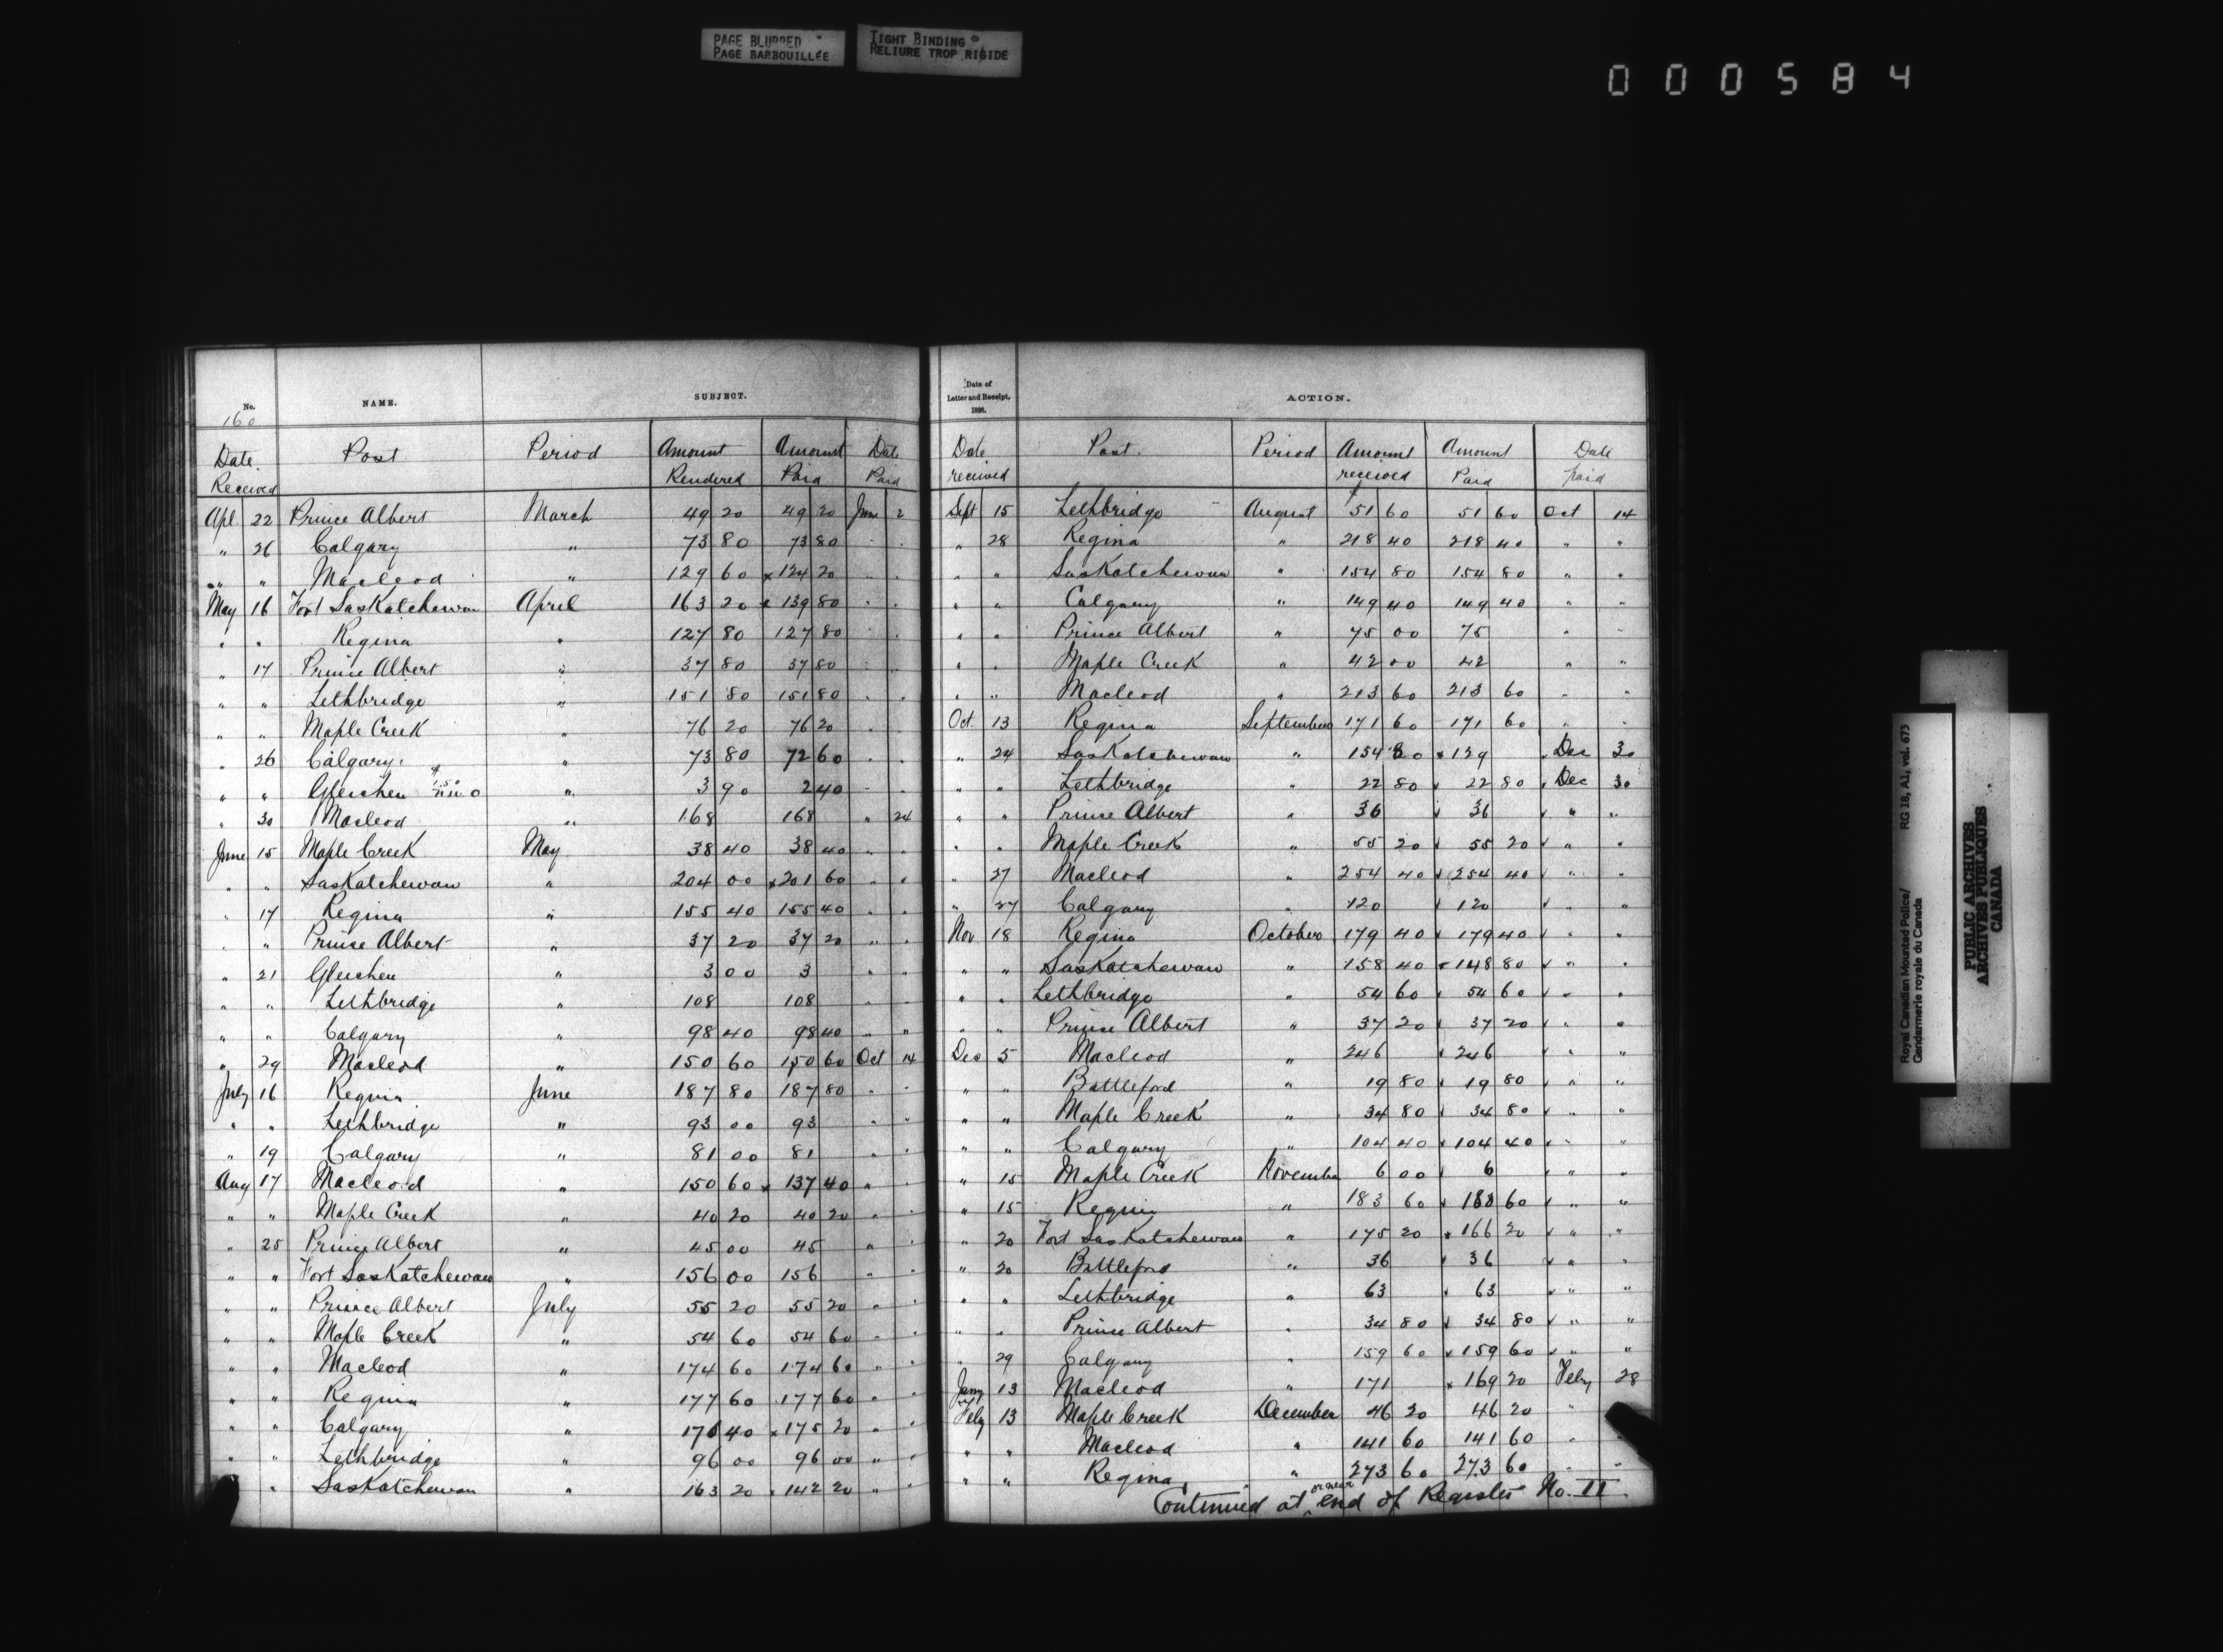 PAGE BLURRED
PAGE BARBOUILLÉE
TIGHT BINDING
RELIURE TROP RIGIDE
000584
No. NAME. SUBJECT.
160
Date Received Post Period Amount Rendered Amount Paid Date Paid
Apl 22 Prince Albert March 49 20 49 20 June 2
" 26 Calgary " 73 80 73 80 " "
" " Macleod " 129 60 x 124 20 " "
May 16 Fort Saskatchewan April 163 20 x 139 80 " "
" " Regina " 127 80 127 80 " "
" 17 Prince Albert " 37 80 37 80 " "
" " Lethbridge " 151 80 151 80 " "
" " Maple Creek " 76 20 76 20 " "
" 26 Calgary " 73 80 72 60 " "
" " Gleichen " 3 90 2 40 " "
" 30 Macleod " 168 168 " 24
June 15 Maple Creek May 38 40 38 40 " "
" " Saskatchewan " 204 00 x 201 60 " "
" 17 Regina " 155 40 155 40 " "
" " Prince Albert " 37 20 37 20 " "
" 21 Gleichen " 3 00 3 " "
" " Lethbridge " 108 108 " "
" " Calgary " 98 40 98 40 " "
" 29 Macleod " 150 60 150 60 Oct 14
July 16 Regina June 187 80 187 80 " "
" " Lethbridge " 93 00 93 " "
" 19 Calgary " 81 00 81 " "
Aug 17 Macleod " 150 60 x 137 40 " "
" " Maple Creek " 40 20 40 20 " "
" 25 Prince Albert " 45 00 45 " "
" " Fort Saskatchewan " 156 00 156 " "
" " Prince Albert July 55 20 55 20 " "
" " Maple Creek " 54 60 54 60 " "
" " Macleod " 174 60 174 60 " "
" " Regina " 177 60 177 60 " "
" " Calgary " 40 x 175 20 " "
" " Lethbridge " 96 00 96 00 " "
" Saskatchewan " 163 20 x 142 20 " "
Date of Letter and Receipt, 1898. ACTION.
Date received Post. Period Amount received Amount Paid Date paid
Sept 15 Lethbridge August $51 60 51 60 Oct 14
" 28 Regina " 218 40 218 40 " "
" " Saskatchewan " 154 80 154 80 " "
" " Calgary " 149 40 149 40 " "
" " Prince Albert " 75 00 75 " "
" " Maple Creek " 42 00 42 " "
" " Macleod " 213 60 213 60 " "
Oct. 13 Regina September 171 60 171 60 " "
" 24 Saskatchewan " 154 80 x 129 Dec 30
" " Lethbridge " 22 80 22 80 Dec 30
" " Prince Albert " 36 36 " "
" " Maple Creek " 55 20 55 20 " "
" 27 Macleod " 254 40 254 40 " "
" 27 Calgary " 120 120 " "
Nov 18 Regina October 179 40 179 40 " "
" " Saskatchewan " 158 40 x 148 80 " "
" " Lethbridge " 54 60 54 60 " "
" " Prince Albert " 37 20 37 20 " "
Dec 5 Macleod " 246 246 " "
" " Battleford " 19 80 19 80 " "
" " Maple Creek " 34 80 34 80 " "
" " Calgary " 104 40 104 40 " "
" 15 Maple Creek November 6 00 6 " "
" 15 Regina " 183 60 183 60 " "
" 20 Fort Saskatchewan " 175 20 x 166 20 " "
" 20 Battleford " 36 36 " "
" " Lethbridge " 63 63 " "
" " Prince Albert " 34 80 34 80 " "
" 29 Calgary " 159 60 159 60 " "
Jany 13 Macleod " 171 x 169 20 Feby 28
Feby 13 Maple Creek December 46 20 46 20 " "
" " Macleod " 141 60 141 60 " "
" " Regina " 273 60 273 60 " "
Continued at or near end of Register No. II
Royal Canadian Mounted Police/ RG 18, A1, vol. 673
Gendarmerie royale du Canada
PUBLIC ARCHIVES
ARCHIVES PUBLIQUES
CANADA